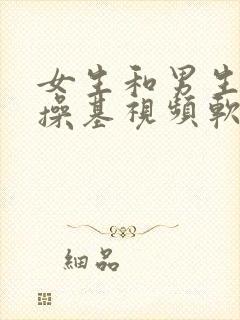 女生和男生
操基視頻軟
細品